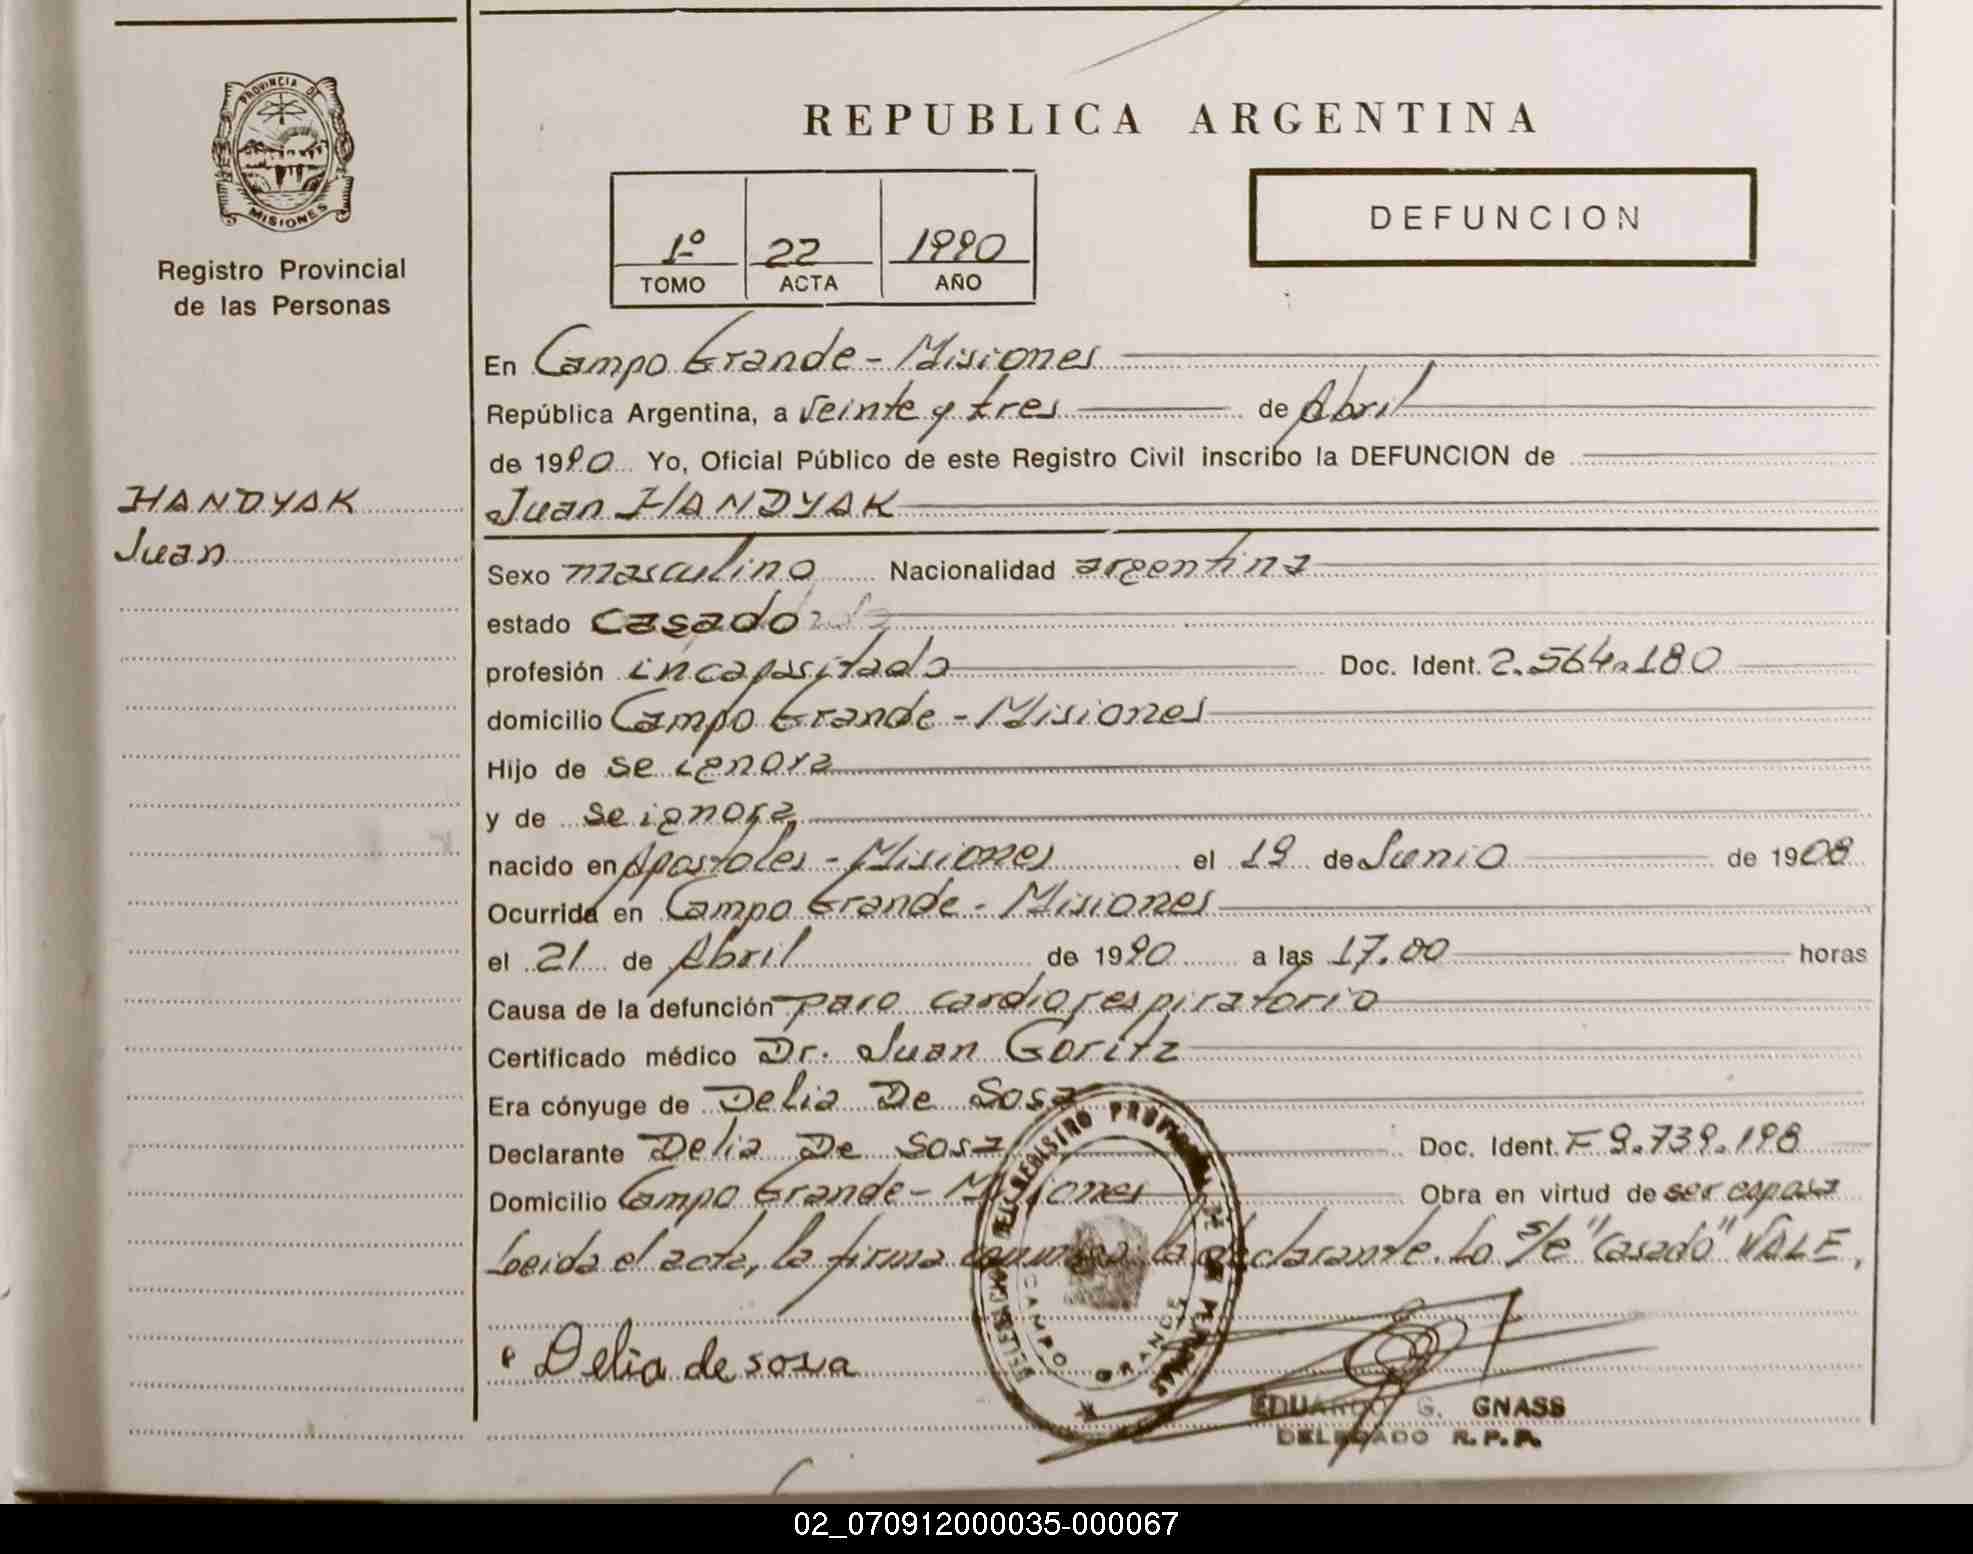 PROVINCIA DE
MISIONES
Registro Provincial
de las Personas
HANDYAK
Juan
REPUBLICA ARGENTINA
1º 22 1990
TOMO ACTA AÑO
DEFUNCION
En Campo Grande - Misiones
República Argentina, a veinte y tres de Abril
de 1990 Yo, Oficial Público de este Registro Civil inscribo la DEFUNCION de
Juan HANDYAK
Sexo masculino Nacionalidad argentina
estado casado
profesión incapasitado Doc. Ident. 2.564.180
domicilio Campo Grande - Misiones
Hijo de se ignora
y de se ignora
nacido en Apostoles - Misiones el 19 de Junio de 1908
Ocurrida en Campo Grande - Misiones
el 21 de Abril de 1990 a las 17.00 horas
Causa de la defunción paro cardiorespiratorio
Certificado médico Dr. Juan Goritz
Era cónyuge de Delia De Sosa
Declarante Delia De Sosa Doc. Ident. F 9.739.198
Domicilio Campo Grande - Misiones Obra en virtud de ser esposa
Leida el acta, la firma conmigo la declarante. Lo s/e "Casado" VALE.
Delia de sosa
DELEGACION DEL REGISTRO PROVINCIAL DE LAS PERSONAS
CAMPO GRANDE
EDUARDO G. GNASS
DELEGADO R.P.P.
02_070912000035-000067